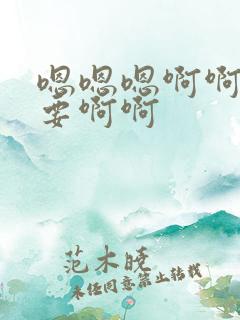 嗯嗯嗯啊啊
要啊啊
范木晓
未经同意禁止转载